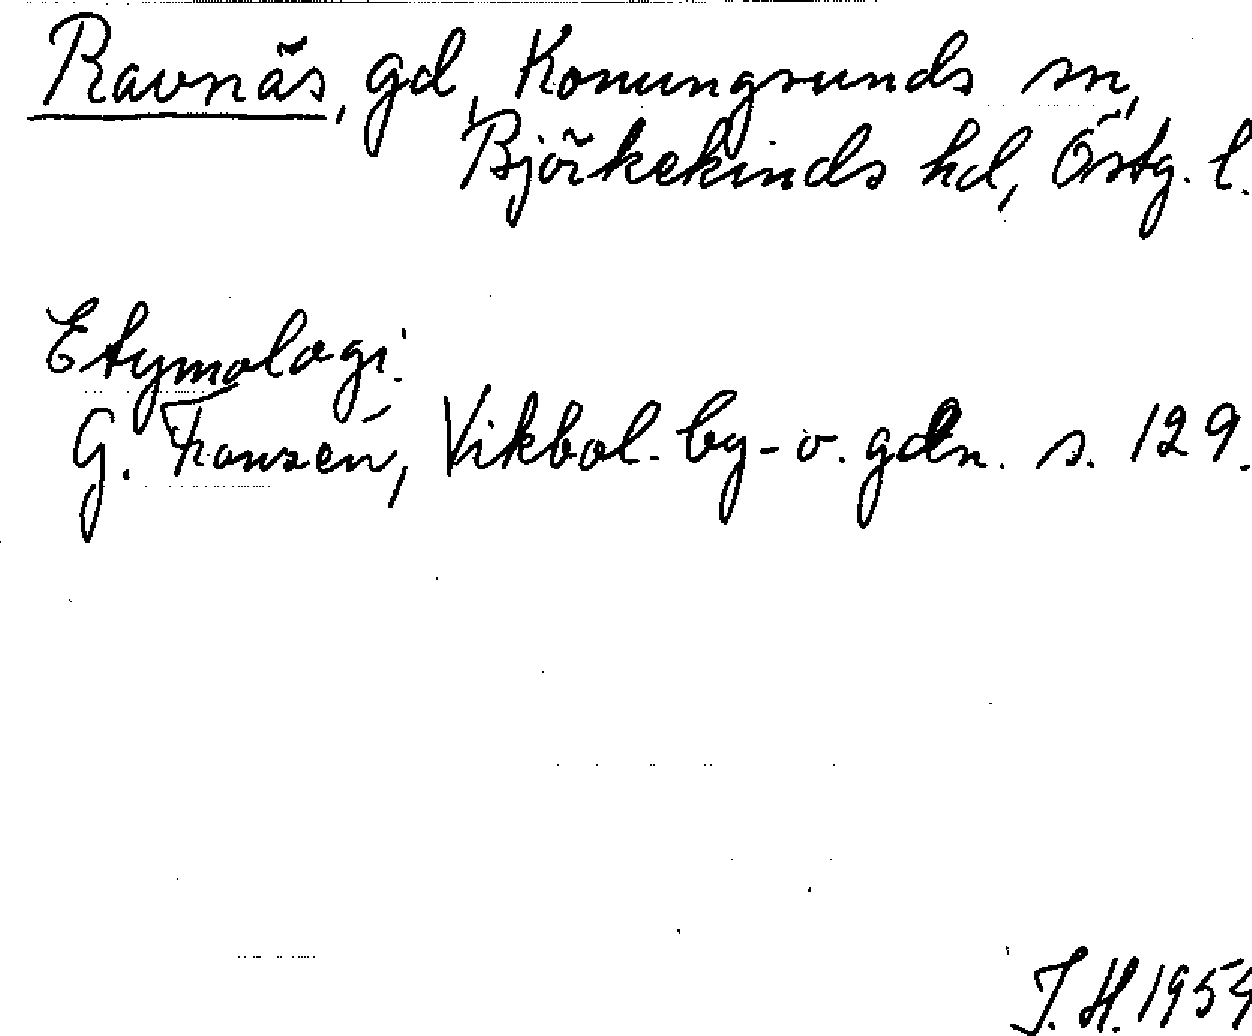 Ravnäs, gd, Konungsunds sn,
Björkekinds hd, Östg. l.
Etymologi.
G. Franzén, Vikbol. by- o. gdn. s. 129.
J.H. 1954